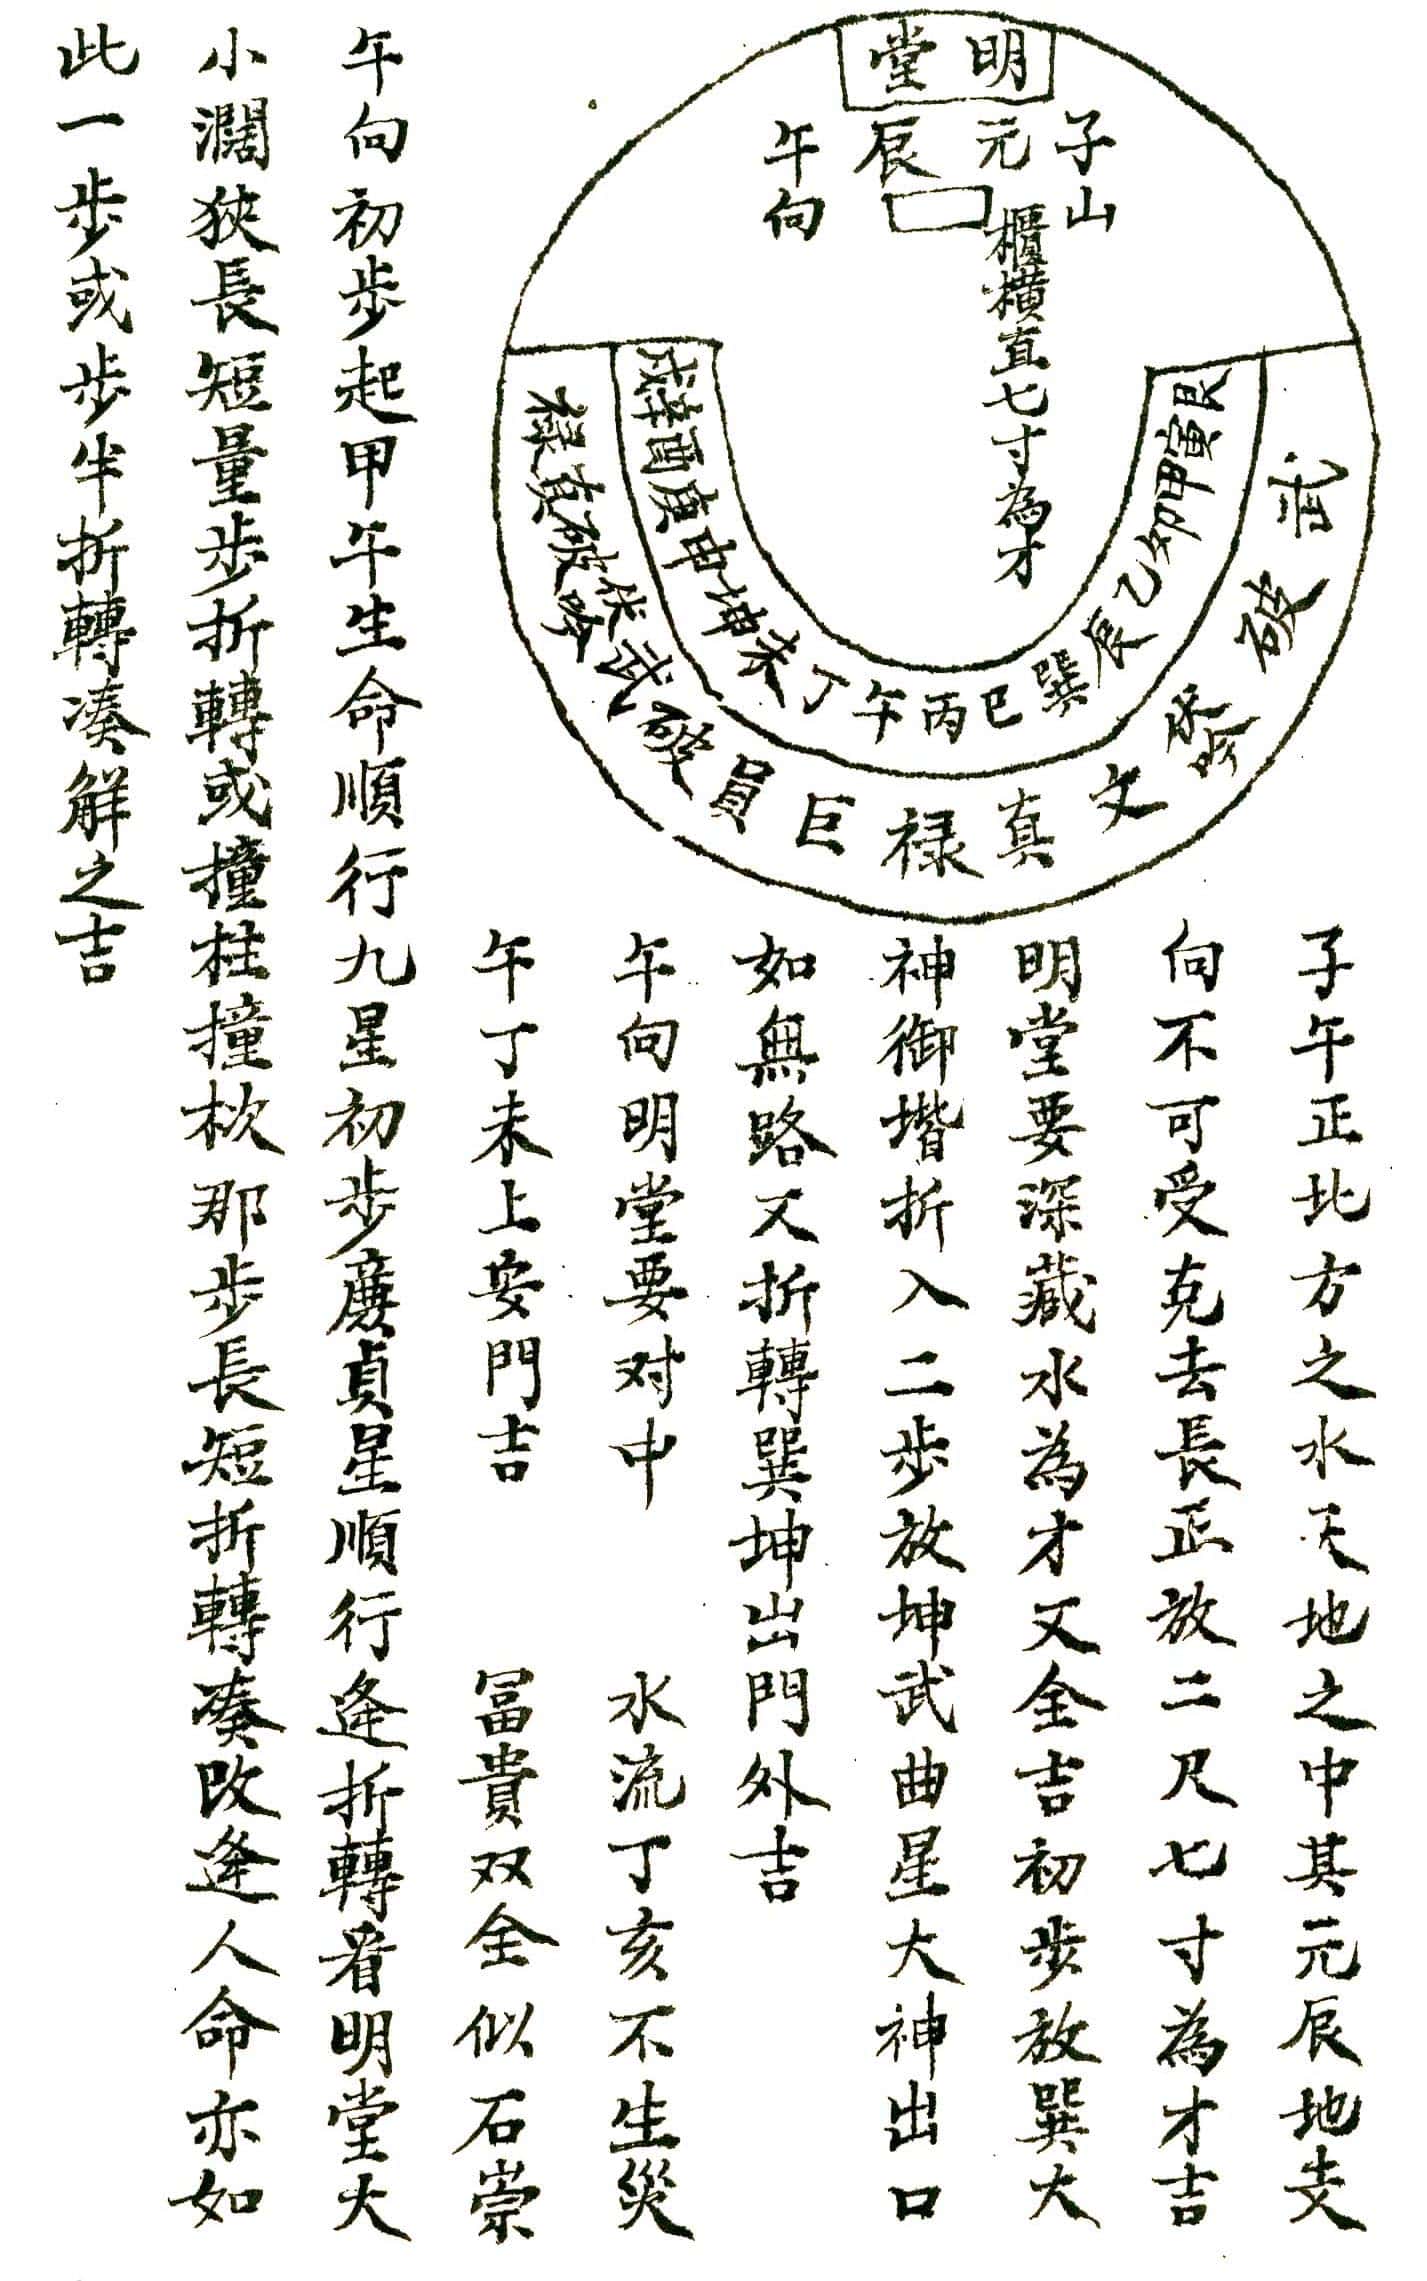 明堂
子山
元辰
午向
櫃橫直七寸為才
艮寅甲卯乙辰巽巳丙午丁未坤申庚酉辛戌
武破文真禄巨員破武伏吟破貞禄
子午正北方之水天地之中其元辰地支
向不可受克去長正放二尺七寸為才吉
明堂要深藏水為才又全吉初步放巽大
神御堦折入二步放坤武曲星大神出口
如無路又折轉巽坤出門外吉
午向明堂要对中 水流丁亥不生災
午丁未上安門吉 冨貴双全似石崇
午向初步起甲午生命順行九星初步廉貞星順行逢折轉看明堂大
小濶狹長短量步折轉或撞柱撞栨那步長短折轉湊改逢人命亦如
此一步或步半折轉湊解之吉